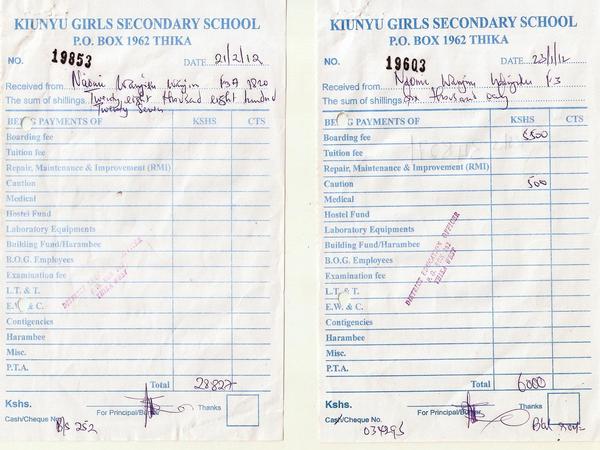 KIUNYU GIRLS SECONDARY SCHOOL
P.O. BOX 1962 THIKA
NO. 19853 DATE 21/2/12
Received from Naomi Wanjiru
The sum of shillings Twenty eight thousand eight hundred
Twenty Seven
PAYMENTS OF KSHS CTS
Boarding fee
Tuition fee
Repair, Maintenance & Improvement (RMI)
Caution
Medical
Hostel Fund
Laboratory Equipments
Building Fund/Harambee
B.O.G. Employees
Examination fee
L.T. & T.
E.W. & C.
Contigencies
Harambee
Misc.
P.T.A.
Total 28827
Kshs.
For Principal/Bursar Thanks
Cash/Cheque No. B/S 252
DISTRICT EDUCATION OFFICER
THIKA WEST
KIUNYU GIRLS SECONDARY SCHOOL
P.O. BOX 1962 THIKA
NO. 19603 DATE 23/1/12
Received from Naomi F3
The sum of shillings Six thousand only
PAYMENTS OF KSHS CTS
Boarding fee 5500
Tuition fee
Repair, Maintenance & Improvement (RMI)
Caution 500
Medical
Hostel Fund
Laboratory Equipments
Building Fund/Harambee
B.O.G. Employees
Examination fee
L.T. & T.
E.W. & C.
Contigencies
Harambee
Misc.
P.T.A.
Total 6000
Kshs.
For Principal/Bursar Thanks
Cash/Cheque No. Bal
DISTRICT EDUCATION OFFICER
THIKA WEST